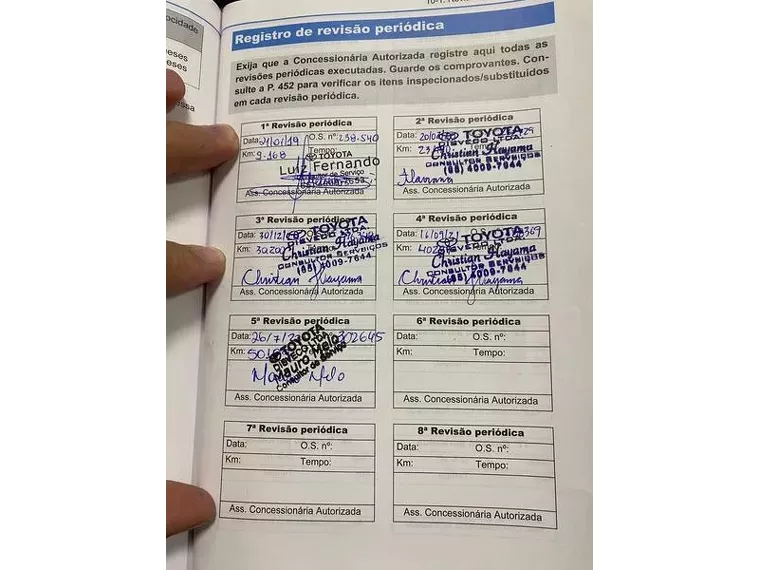 Registro de revisão periódica
Exija que a Concessionária Autorizada registre aqui todas as
revisões periódicas executadas. Guarde os comprovantes. Con-
sulte a P. 452 para verificar os itens inspecionados/substituídos
em cada revisão periódica.
1ª Revisão periódica
Data: O.S. nº: 238.540
Km: 9.168 Tempo:
TOYOTA
Luiz Fernando
Consultor de Serviço
Ass. Concessionária Autorizada
2ª Revisão periódica
Data:
TOYOTA
DISVECO LTDA
Km:
Christian Hayama
CONSULTOR SERVIÇOS
(65) 4009-7644
Ass. Concessionária Autorizada
3ª Revisão periódica
Data:
TOYOTA
DISVECO LTDA
Km:
Christian Hayama
CONSULTOR SERVIÇOS
(65) 4009-7644
Christian Hayama
Ass. Concessionária Autorizada
4ª Revisão periódica
Data: 16/09/21
TOYOTA
DISVECO LTDA
Km:
Christian Hayama
CONSULTOR SERVIÇOS
(65) 4009-7644
Hayama
Ass. Concessionária Autorizada
5ª Revisão periódica
Data: 302645
Km:
TOYOTA
DISVECO LTDA
Mauro Melo
Consultor de Serviço
Melo
Ass. Concessionária Autorizada
6ª Revisão periódica
Data: O.S. nº:
Km: Tempo:
Ass. Concessionária Autorizada
7ª Revisão periódica
Data: O.S. nº:
Km: Tempo:
Ass. Concessionária Autorizada
8ª Revisão periódica
Data: O.S. nº:
Km: Tempo:
Ass. Concessionária Autorizada